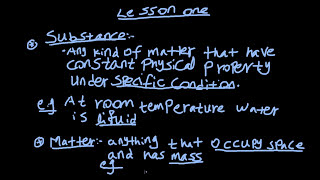 Lesson one
Substance:-
• Any kind of matter that have
constant Physical Property
under Specific Condition.
e.g At room temperature water
is liquid
Matter:- anything that occupy space
and has mass
eg